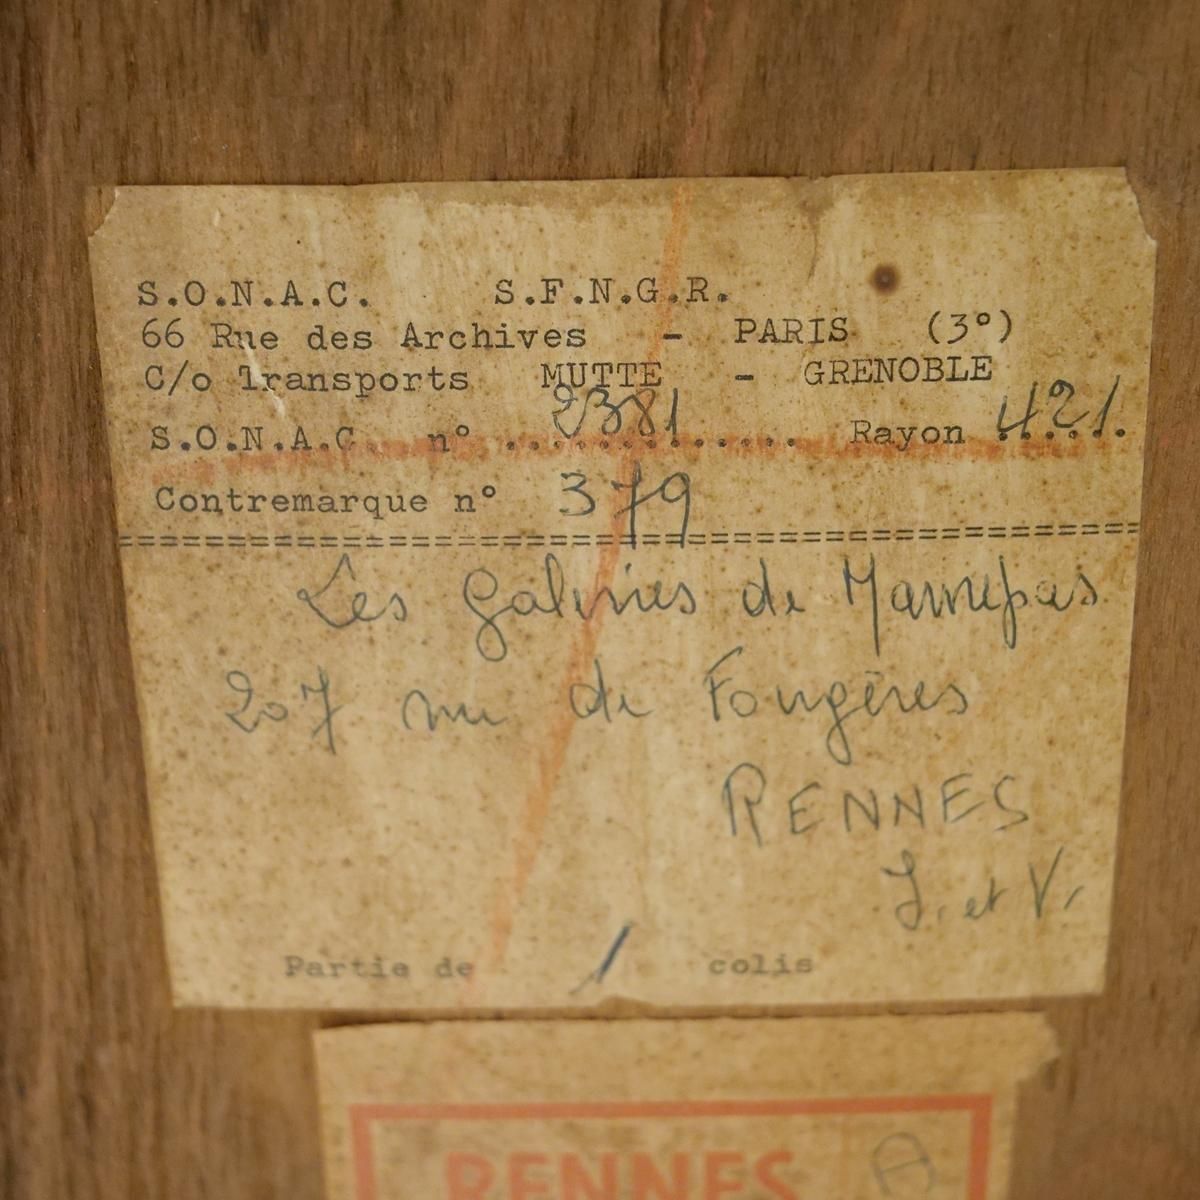 S.O.N.A.C. S.F.N.G.R.
66 Rue des Archives - PARIS (3°)
C/o Transports MUTTE - GRENOBLE
S.O.N.A.C. n° ..2381.......... Rayon 421.
Contremarque n° 379
==================================================
Les Galeries de Maurepas
207 rue de Fougères
RENNES
I. et V.
Partie de 1 colis
RENNES
A